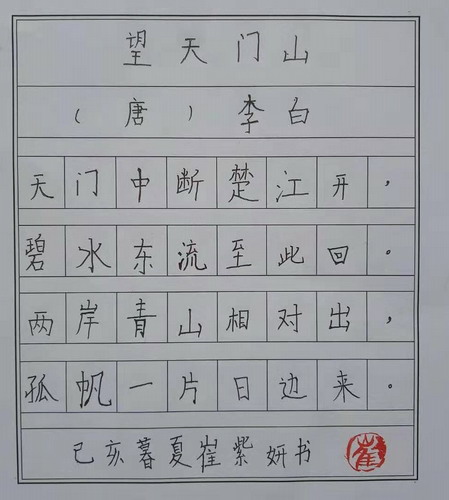 望天门山
（唐）李白
天门中断楚江开，
碧水东流至此回。
两岸青山相对出，
孤帆一片日边来。
己亥暮夏崔紫妍书 崔